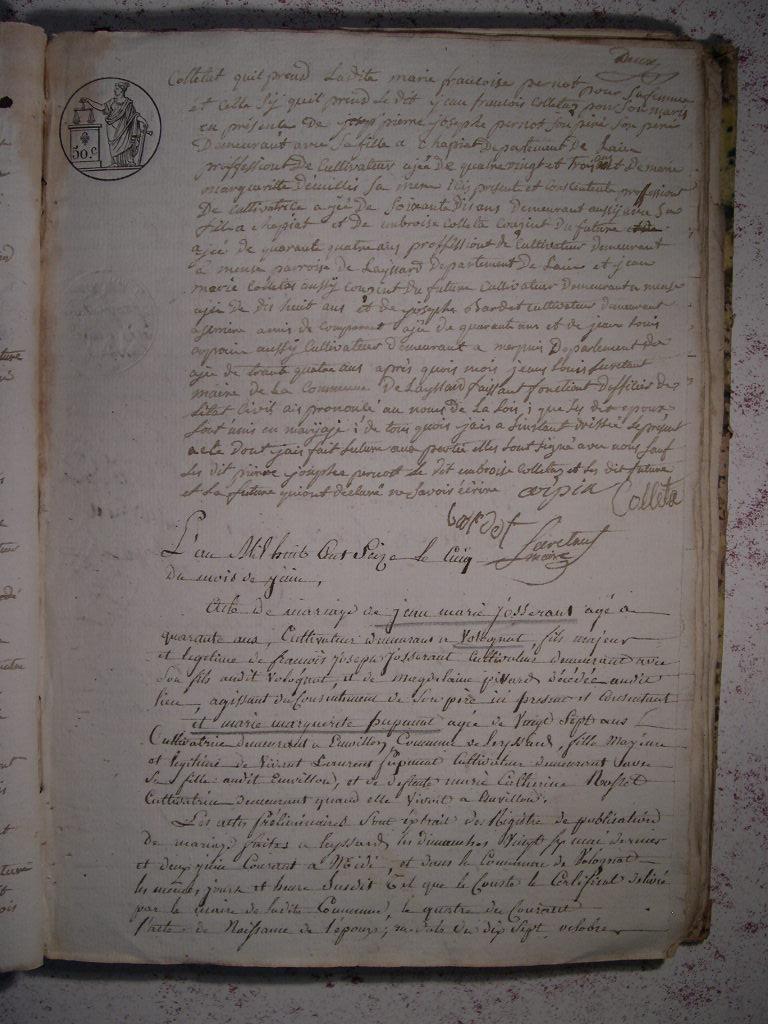 Deux
Colletat quil prend Ladite marie francoise pernot pour sa femme
et Celle Sy quil prend Le dit jean francois Colletaz pour Son maris
en présente De pierre josephe pernot Son péré
Demeurant avec Sa fille a Chapiat Departement De Laiin
proffessiont De Cultivateur ajéé De quatre vingt et trois et De marie
margueritte Sa mere isy present et Consentente proffessiont
De Cultivatrice ajéé De Soixante Dis ans Demeurant aussy avec Sa
fille a Chapiat et De embroise Colleta Cousient Du future
ajéé de quarante quatre ans proffessiont de Cultivateur demeurant
a meuse parroise De Layssard Departement De Laiin et jean
marie Colletas aussy Cousient Du future Cultivateur Demeurant a meuse
ajéé De dis huit ans et De josephe Bardet Cultivateur demeurant
a amis de ajéé de quarente ans et de jean louis
arpain aussy Cultivateur Demeurant a Departement de
ajéé De trante quatre ans après quois mois jean Louis Savetant
maire De La Commune De Layssard faissant fonctiont Dofficies De
Létat Civil ais prononcé au noms De La Lois, que Les dit epoux
Sont unis en marijajé, de tous quois jais a Linstant drissée Le present
acte Dont jais fait Lulure aux partie elles Sont Signé avec nous Sauf
Les dit pierre josephe pernot Le dit embroise Colletaz et Les dit future
et La future quiont déclaré ne Savoir écrire arpin Colleta
bardet Savetant
maire
L'an Mil huit Cent Seize le Cinq
Du mois de juin,
Acte de mariage de jean marie josserant agé de
quarante ans, Cultivateur demeurant a Volognat fils majeur
et legitime de francois joseph josserant Cultivateur demeurant avec
Son fils audit Volognat, et de magdelaine pivard décédée audit
lieu, agissant du Consentement de Son père ici present et Consentant
et marie marguerite pupunat agée de Vingt Sept ans
Cultivatrice demeurant a Emvillon Commune de leyssard, fille Majeure
et legitime de Vivant Laurent pupunat Cultivateur demeurant avec
Sa fille audit Emvillon, et de defunte marie Catherine
Cultivatrice demeurant quand elle Vivoit a Emvillon.
Les actes préliminaires Sont extrait des Régistre de publication
de mariage faites a leyssard les dimanches Vingt Six mai dernier
et deux juin Courant a Midi, et dans la Commune de Volognat
les mêmes jours et heure Susdit tel que le Conste le Certificat délivré
par le maire de ladite Commune, le quatre du Courant
l'acte de Naissance de l'époux, en date du dix Sept octobre
50.C